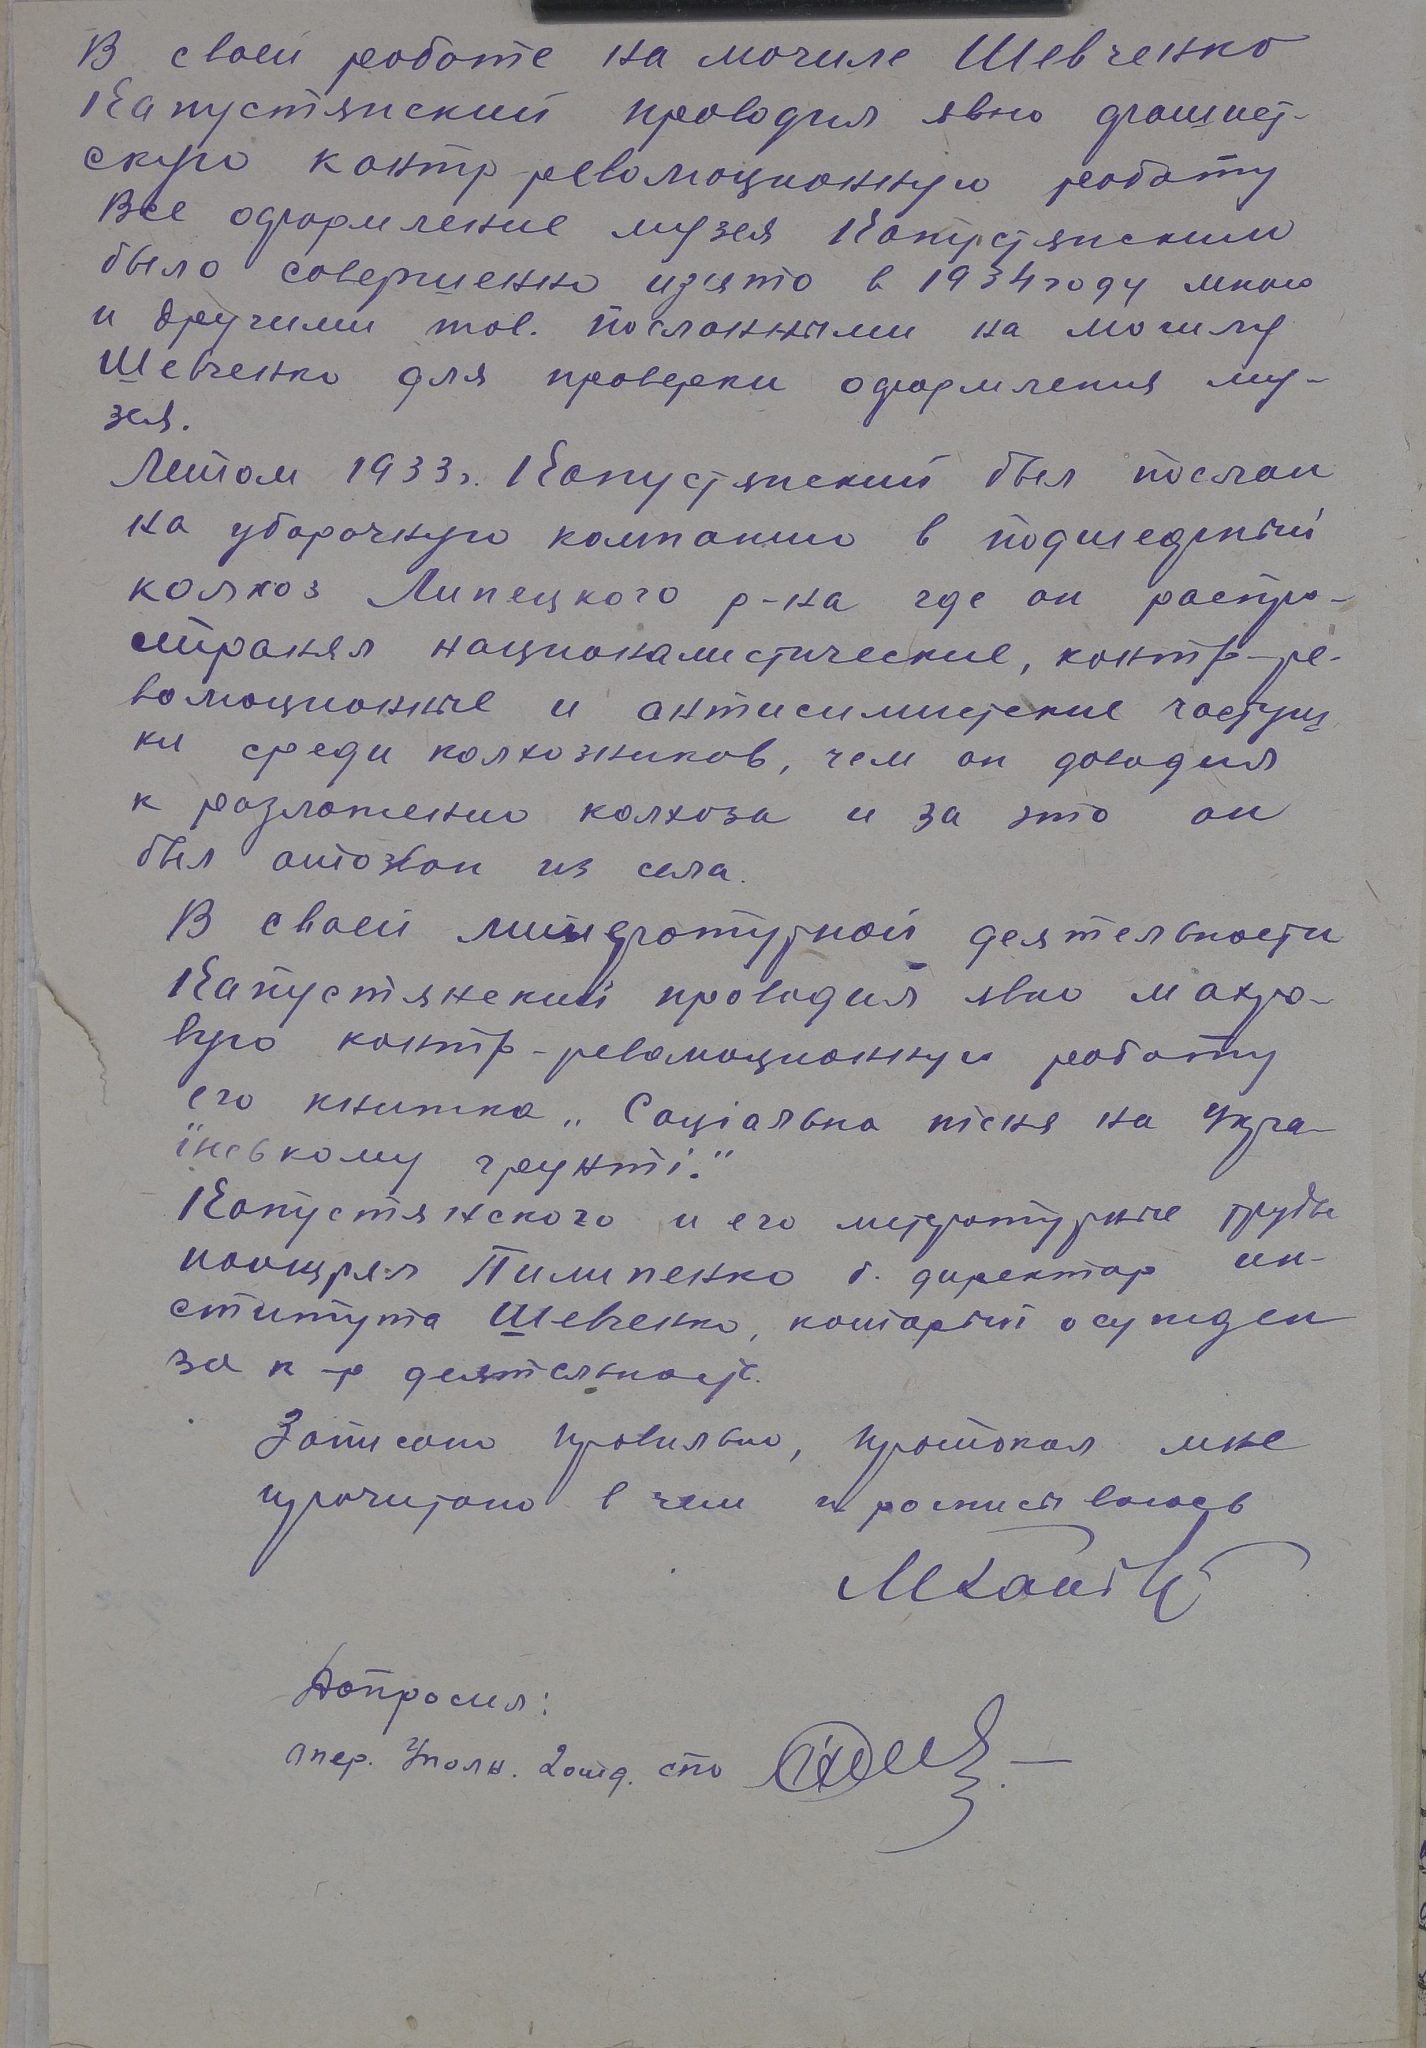 В своей работе на могиле Шевченко
Капустянский проводил явно фашист-
скую контр революционную работу
Все оформление музея Капустянским
было совершенно изято в 1934 году мною
и другими тов. посланными на могилу
Шевченко для проверки оформления му-
зея.
Летом 1933 г. Капустянский был послан
на уборочную компанию в подшефный
колхоз Липецкого р-на где он распро-
странял националистические, контр-ре-
волюционные и антисимистские частуш
ки среди колхозников, чем он доводил
к разложению колхоза и за это он
был отозван из села.
В своей литературной деятельности
Капустянский проводил явно махро-
вую контр-революционную работу
его книжка „Соціальна пісня на Укра-
їнському грунті."
Капустянского и его литературные труды
поощрял Пилипенко б. директор ин-
ститута Шевченко, который осужден
за к-р деятельность.
Записано правильно, протокол мне
прочитано в чем и росписываюсь
Допросил:
опер. Уполн. 2 отд. спо